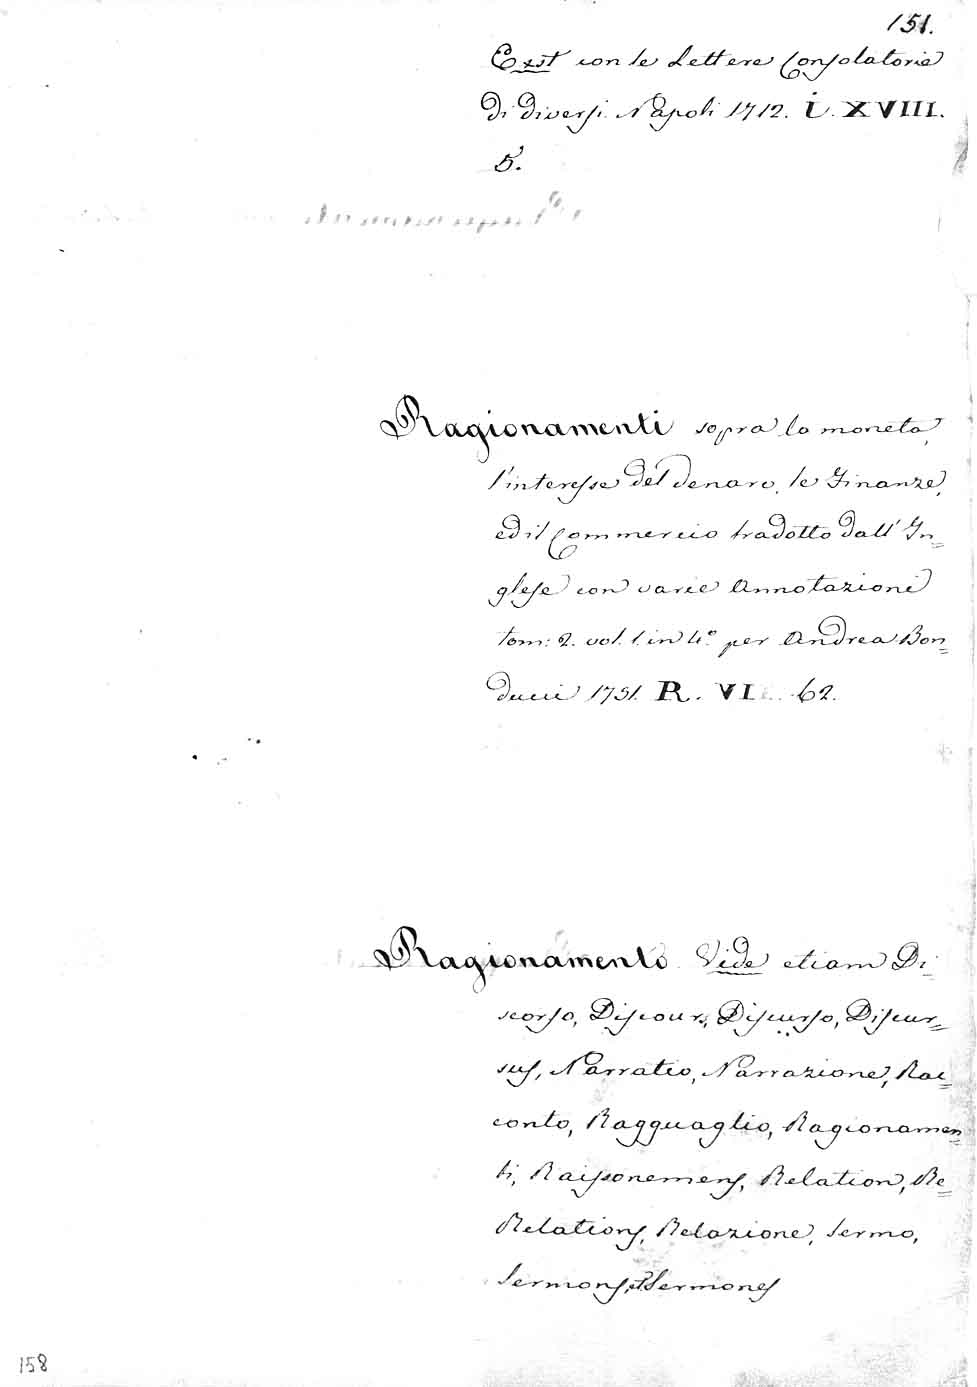 151.
Exst con le Lettere Consolatorie
di diversi. Napoli 1712. i. XVIII.
5.
Ragionamenti sopra la moneta,
l'interesse del denaro, le Finanze,
ed il Commercio tradotto dall' In=
glese con varie Annotazioni
tom: 2. vol. 1. in 4.° per Andrea Bon=
ducci 1751. R. VI. 62.
Ragionamento. Vide etiam Di=
scorso, Discours, Discurso, Discur=
sus, Narratio, Narrazione, Rac=
conto, Ragguaglio, Ragionamen=
ti, Raisonemens, Relation, Re=
Relations, Relazione, Sermo,
Sermons, et Sermones
158